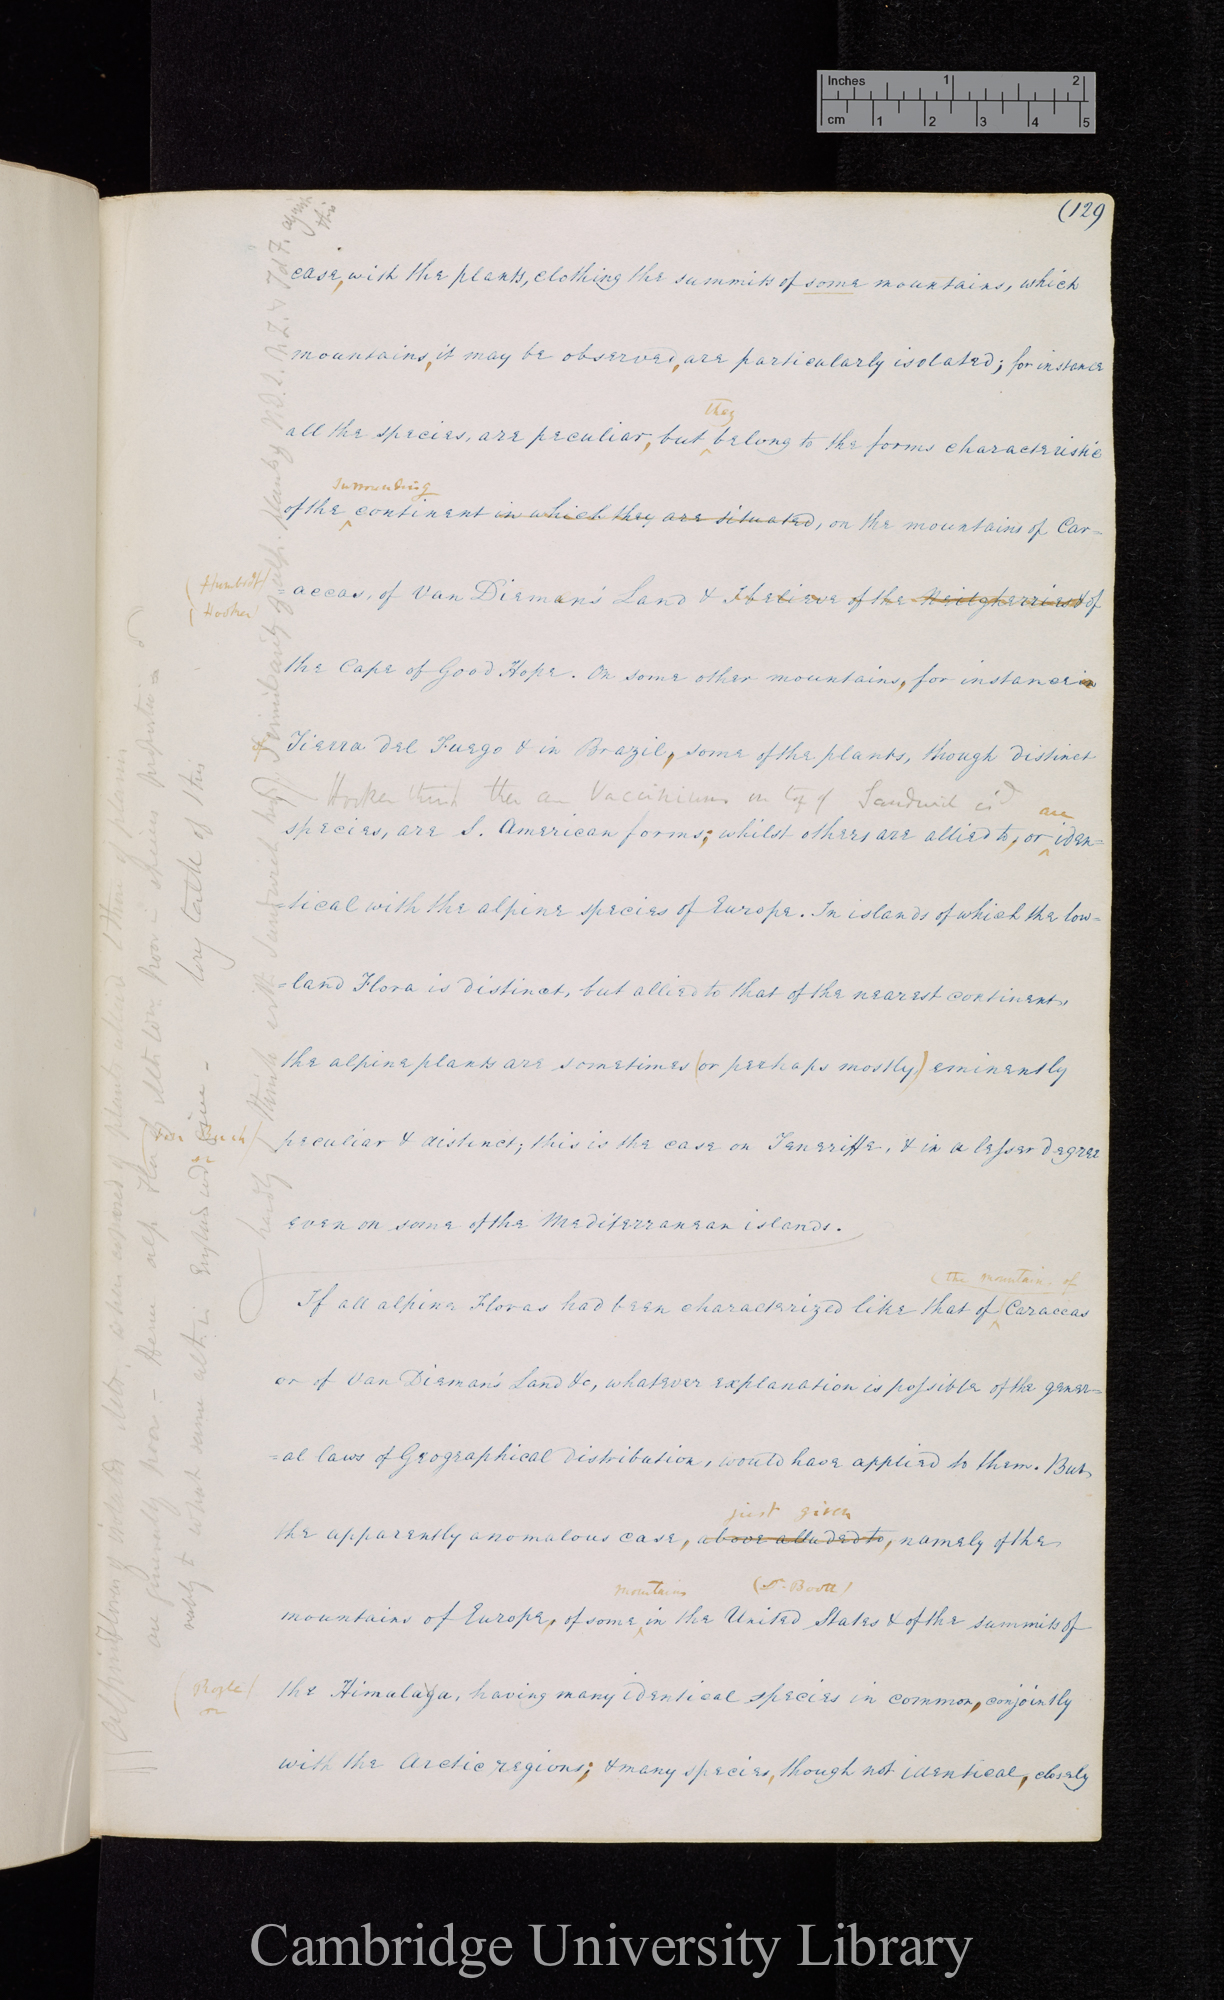 Inches 1 2
cm 1 2 3 4 5
(129
case, with the plants, clothing the summits of some mountains, which
mountains, it may be observed, are particularly isolated; for instance
they
all the species, are peculiar, but belong to the forms characteristic
surrounding
of the continent in which they are situated, on the mountains of Car=
(Humboldt)
(Hooker)
=accas, of Van Dieman's Land & I believe of the Neilgherries & of
the Cape of Good Hope. On some other mountains, for instance in
Tierra del Fuego & in Brazil, some of the plants, though distinct
Hooker think there are Vacciniums on top of Sandwich isd
are
species, are S. American forms; whilst others are allied to, or iden=
=tical with the alpine species of Europe. In islands of which the low=
=land Flora is distinct, but allied to that of the nearest continent,
the alpine plants are sometimes (or perhaps mostly) eminently
(Von Buch)
peculiar & distinct; this is the case on Teneriffe, & in a lesser degree
even on some of the Mediterranean islands.
(the mountains of
If all alpine Floras had been characterized like that of Caraccas
or of Van Dieman's Land &c, whatever explanation is possible of the gener=
=al laws of Geographical distribution, would have applied to them. But
just given
the apparently anomalous case, above alluded to, namely of the
mountains (Dr. Boott)
mountains of Europe, of some in the United States & of the summits of
(Royle)
the Himalaya, having many identical species in common, conjointly
with the Arctic regions; & many species, though not identical, closely
Cambridge University Library